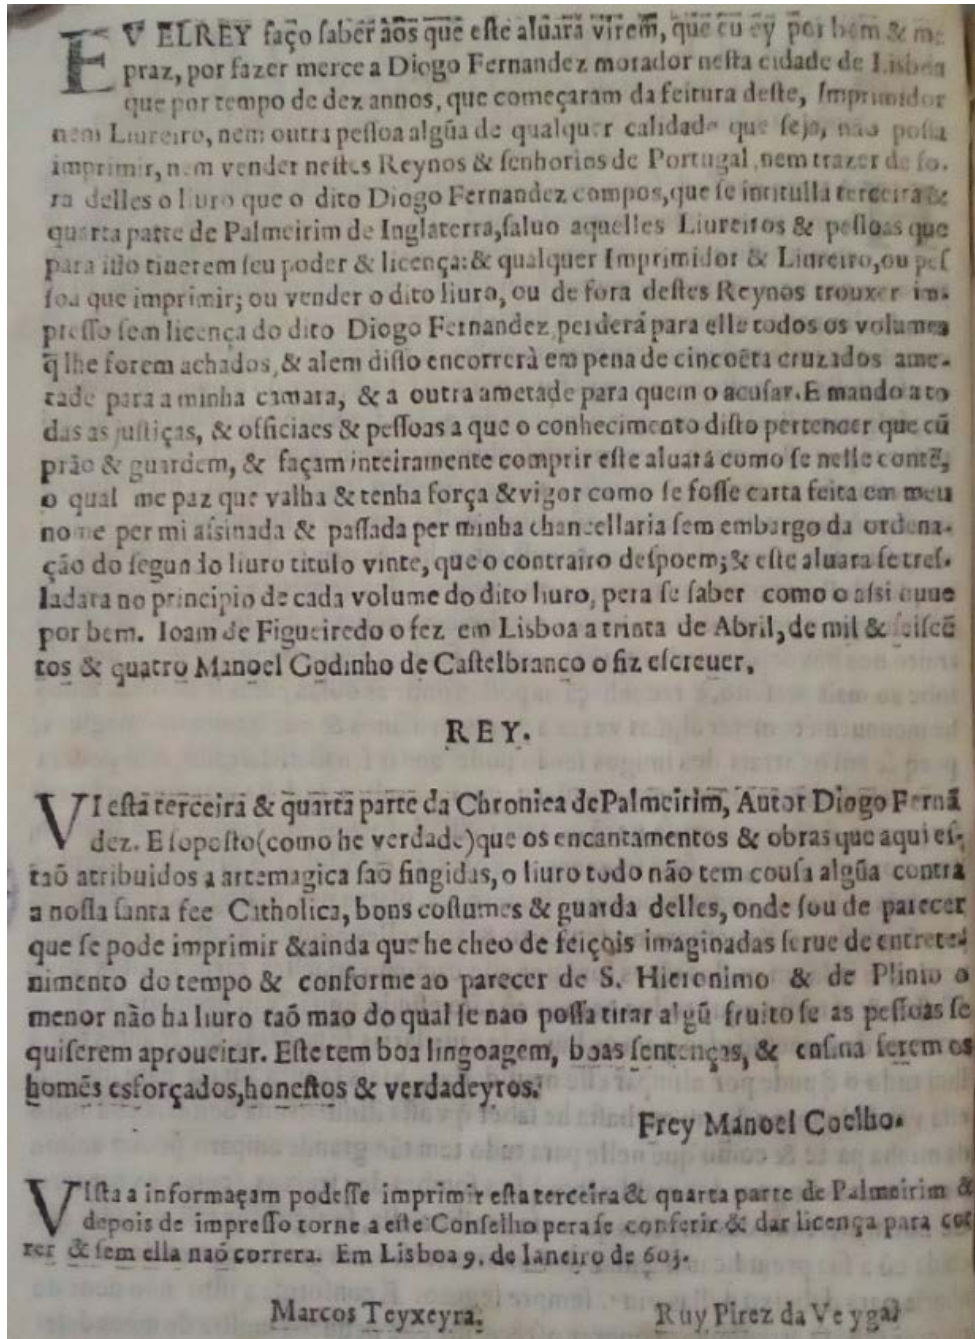 EV ELREY faço ſaber aos que eſte aluará virem, que eu ey por bem & me
praz, por fazer merce a Diogo Fernandez morador neſta cidade de Lisboa
que por tempo de dez annos, que começaram da feitura deſte, Imprimidor
nem Liureiro, nem outra peſſoa algũa de qualquer calidade que ſeja, não poſſa
imprimir, nem vender neſtes Reynos & ſenhorios de Portugal, nem trazer de fo-
ra delles o liuro que o dito Diogo Fernandez compos, que ſe intitulla terceira &
quarta parte de Palmeirim de Inglaterra, ſaluo aquelles Liureiros & peſſoas que
para iſſo tiuerem ſeu poder & licença: & qualquer Imprimidor & Liureiro, ou peſ
ſoa que imprimir; ou vender o dito liuro, ou de fora deſtes Reynos trouxer im-
preſſo ſem licença do dito Diogo Fernandez, perderá para elle todos os volumes
q̃ lhe forem achados, & alem diſſo encorrerà em pena de cincoẽta cruzados ame-
tade para a minha camara, & a outra ametade para quem o acuſar. E mando a to
das as juſtiças, & officiaes & peſſoas a que o conhecimento diſto pertencer que cũ
prão & guardem, & façam inteiramente comprir eſte aluará como ſe nelle contẽ,
o qual me paz que valha & tenha força & vigor como ſe foſſe carta feita em meu
nome per mi aſsinada & paſſada per minha chancellaria ſem embargo da ordena-
ção do ſegundo liuro titulo vinte, que o contrairo deſpoem; & eſte aluara ſe treſ-
ladara no principio de cada volume do dito liuro, pera ſe ſaber como o aſsi ouue
por bem. Ioam de Figueiredo o fez em Lisboa a trinta de Abril, de mil & ſeiſcẽ
tos & quatro Manoel Godinho de Caſtelbranco o fiz eſcreuer.
REY.
VI eſta terceira & quarta parte da Chronica de Palmeirim, Autor Diogo Fernã
dez. E ſopoſto (como he verdade) que os encantamentos & obras que aqui eſ-
taõ atribuidos a arte magica ſaõ fingidas, o liuro todo não tem couſa algũa contra
a noſſa ſanta fee Catholica, bons coſtumes & guarda delles, onde ſou de parecer
que ſe pode imprimir & ainda que he cheo de feiçois imaginadas ſerue de entrete-
nimento do tempo & conforme ao parecer de S. Hieronimo & de Plinio o
menor não ha liuro taõ mao do qual ſe nao poſſa tirar algũ fruito ſe as peſſoas ſe
quiſerem aproueitar. Eſte tem boa lingoagem, boas ſentenças, & enſina ſerem os
homẽs esforçados, honeſtos & verdadeyros.
Frey Manoel Coelho.
VIſta a informaçam podeſſe imprimir eſta terceira & quarta parte de Palmeirim &
depois de impreſſo torne a eſte Conſelho pera ſe conferir & dar licença para cor
rer & ſem ella naõ correra. Em Lisboa 9. de Ianeiro de 603.
Marcos Teyxeyra. Ruy Pirez da Veyga.